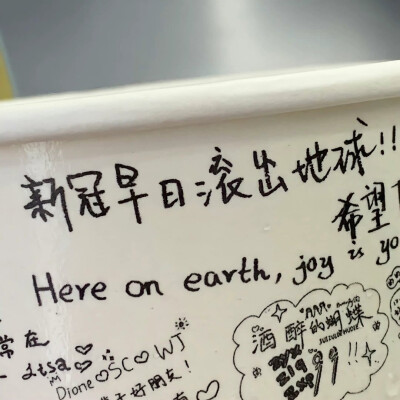 新冠早日滚出地球!!
希望
Here on earth, joy is yo
常在
Lisa
Dione♡SC♡WJ
好朋友!
酒醉的蝴蝶
99!!